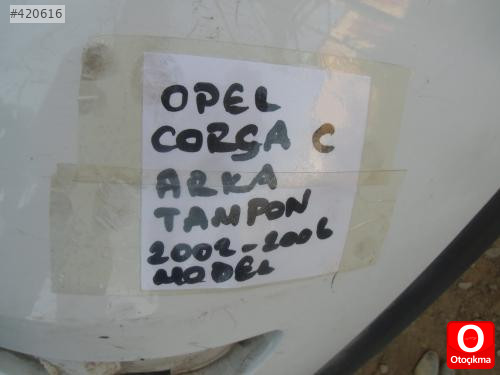 #420616
OPEL
CORSA C
ARKA
TAMPON
2002-2006
MODEL
Otoçıkma